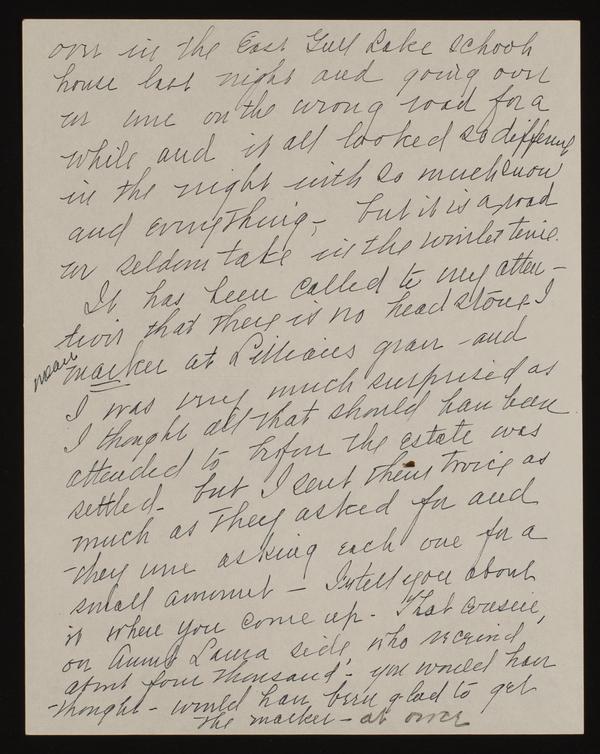 over in the East Gull Lake school
house last night and going over
we were on the wrong road for a
while and it all looked so different
in the night with so much snow
and everything, but it is a road
we seldom take in the winter time.
It has been called to my atten-
tion that there is no head stone I
mean marker at Lillian's grave - and
I was very much surprised as
I thought all that should have been
attended to before the estate was
settled - but I sent them twice as
much as they asked for and
they were asking each one for a
small amount - I'll tell you about
it when you come up. That cousin,
on Aunt Laura side, who received
about four thousand - you would have
thought - would have been glad to get
the marker - at once